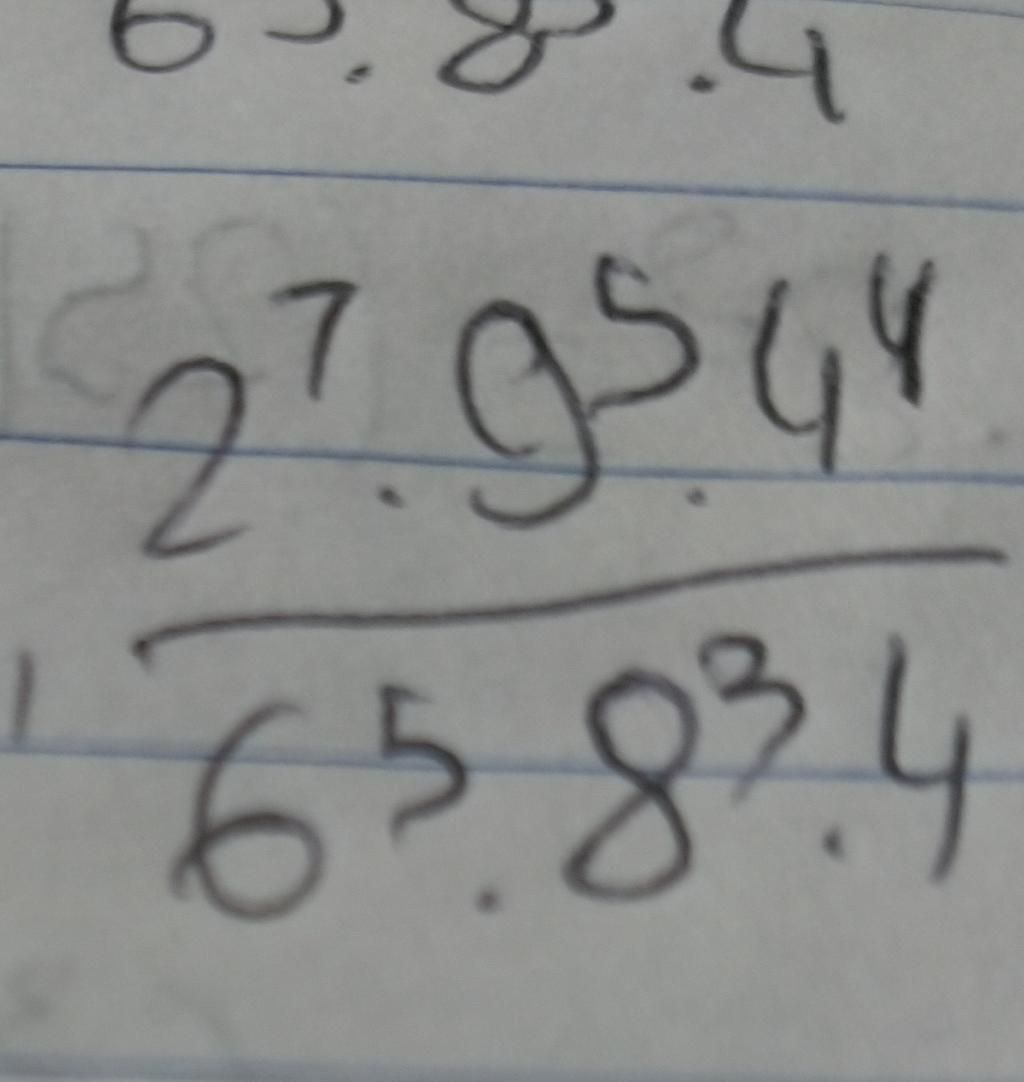 6⁵ . 8³ . 4
2⁷ . 9⁵ . 4⁴
6⁵ . 8³ . 4